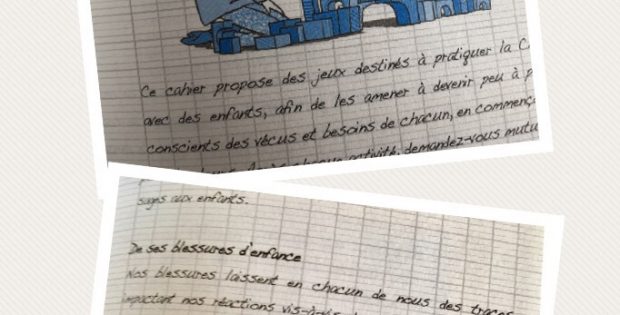 Ce cahier propose des jeux destinés à pratiquer la C
avec des enfants, afin de les amener à devenir peu à p
conscients des vécus et besoins de chacun, en commença
activité, demandez-vous mutu
sages aux enfants.
De ses blessures d'enfance
Nos blessures laissent en chacun de nous des traces
impactant nos réactions vis-à-vis